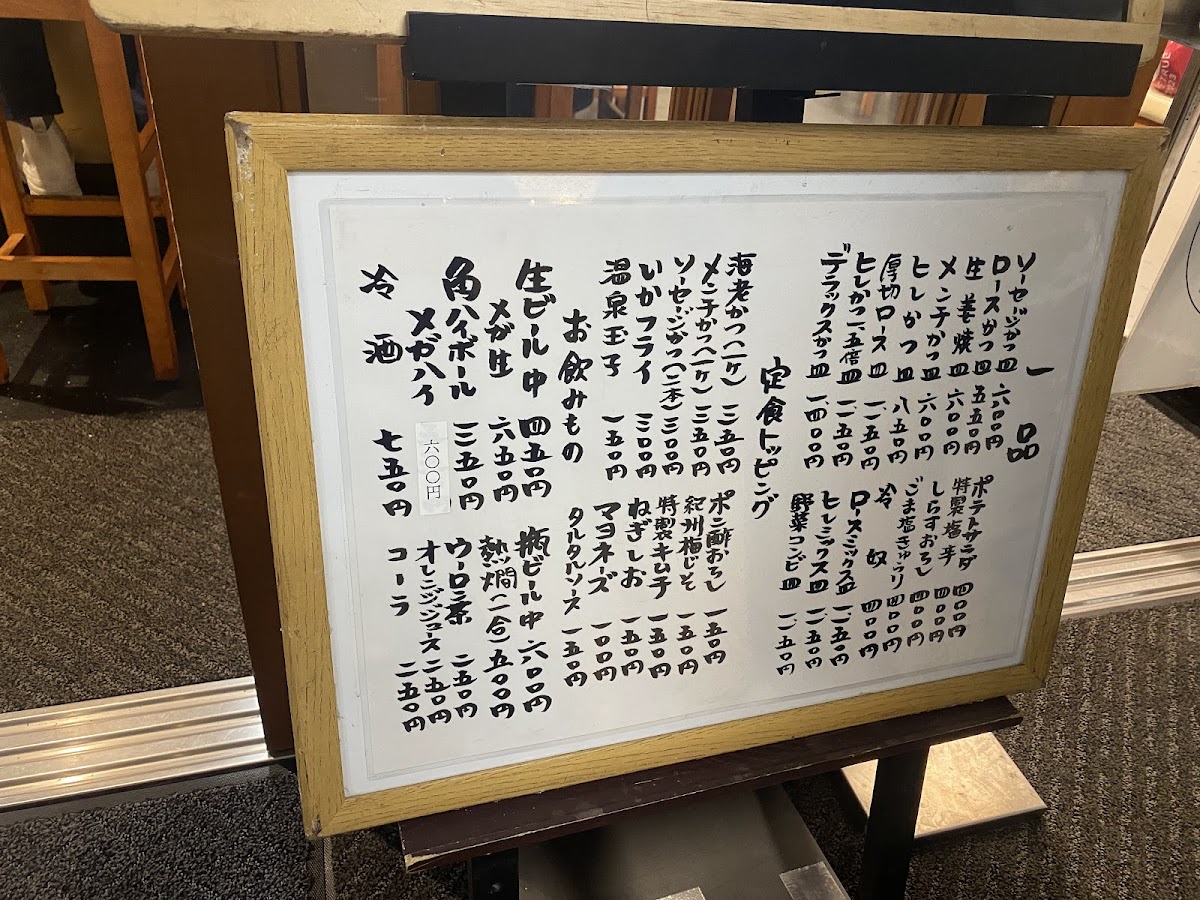 一品
ソーセージかつ皿 六〇〇円
ロースかつ皿 五五〇円
生姜焼皿 六〇〇円
メンチかつ皿 六〇〇円
ヒレかつ皿 八五〇円
厚切ロース皿
ヒレかつ一、五倍皿
デラックスかつ皿 一、四〇〇円
ポテトサラダ 四〇〇円
特製塩辛 四〇〇円
しらすおろし 四〇〇円
ごま塩きゅうり 四〇〇円
冷奴 四〇〇円
ロースミックス皿
ヒレミックス皿
野菜コンビ皿
定食トッピング
海老かつ(一ヶ) 三五〇円
メンチかつ(一ヶ) 三五〇円
ソーセージかつ(一本) 三〇〇円
いかフライ 三〇〇円
温泉玉子 一五〇円
ポン酢おろし 一五〇円
紀州梅じそ 一五〇円
特製キムチ 一五〇円
ねぎしお 一五〇円
マヨネーズ 一〇〇円
タルタルソース 一五〇円
お飲みもの
生ビール中 四五〇円
メガ生 六五〇円
角ハイボール 三五〇円
メガハイ 六〇〇円
冷酒 七五〇円
瓶ビール中 六〇〇円
熱燗(一合) 五〇〇円
ウーロン茶 二五〇円
オレンジジュース 二五〇円
コーラ 二五〇円